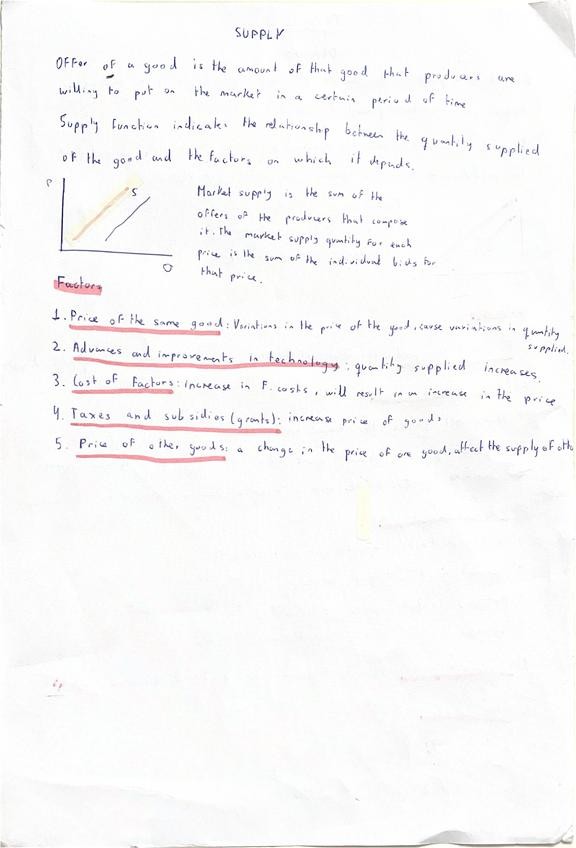 SUPPLY
Offer of a good is the amount of that good that producers are
willing to put on the market in a certain period of time
Supply function indicates the relationship between the quantity supplied
of the good and the factors on which it depends.
P
S
Q
Market supply is the sum of the
offers of the producers that compose
it. The market supply quantity for each
price is the sum of the individual bids for
that price.
Factors
1. Price of the same good: Variations in the price of the good, cause variations in quantity
supplied.
2. Advances and improvements in technology: quantity supplied increases.
3. Cost of Factors: increase in F. costs, will result in an increase in the price
4. Taxes and subsidies (grants): increase price of goods
5. Price of other goods: a change in the price of one good, affect the supply of othe